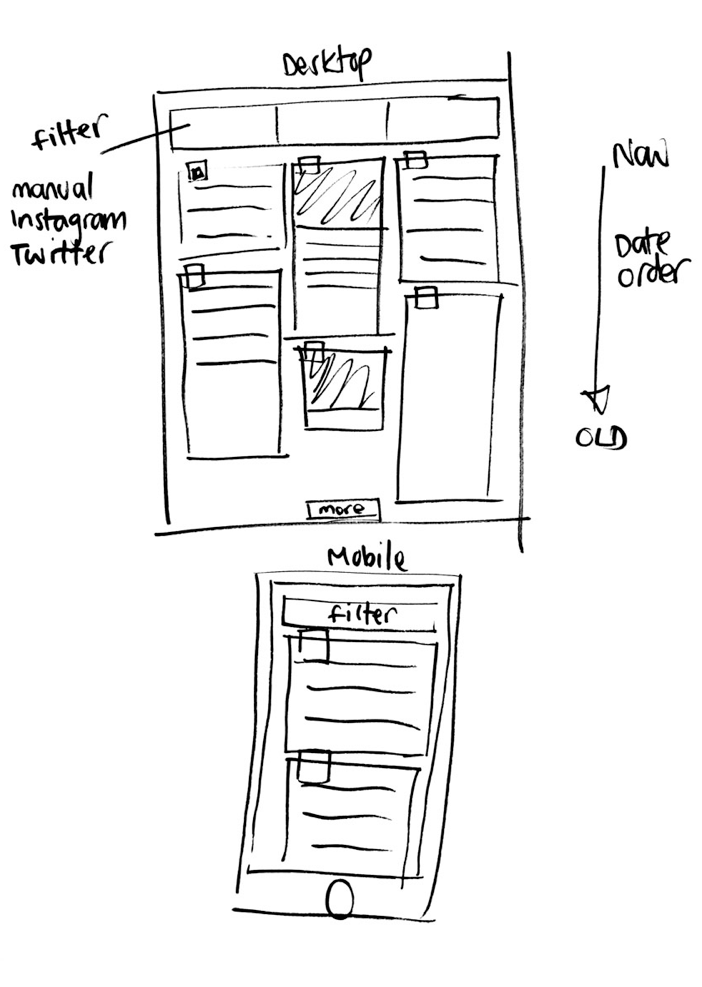 Desktop
filter
manual
Instagram
Twitter
Now
Date
order
OLD
more
Mobile
filter